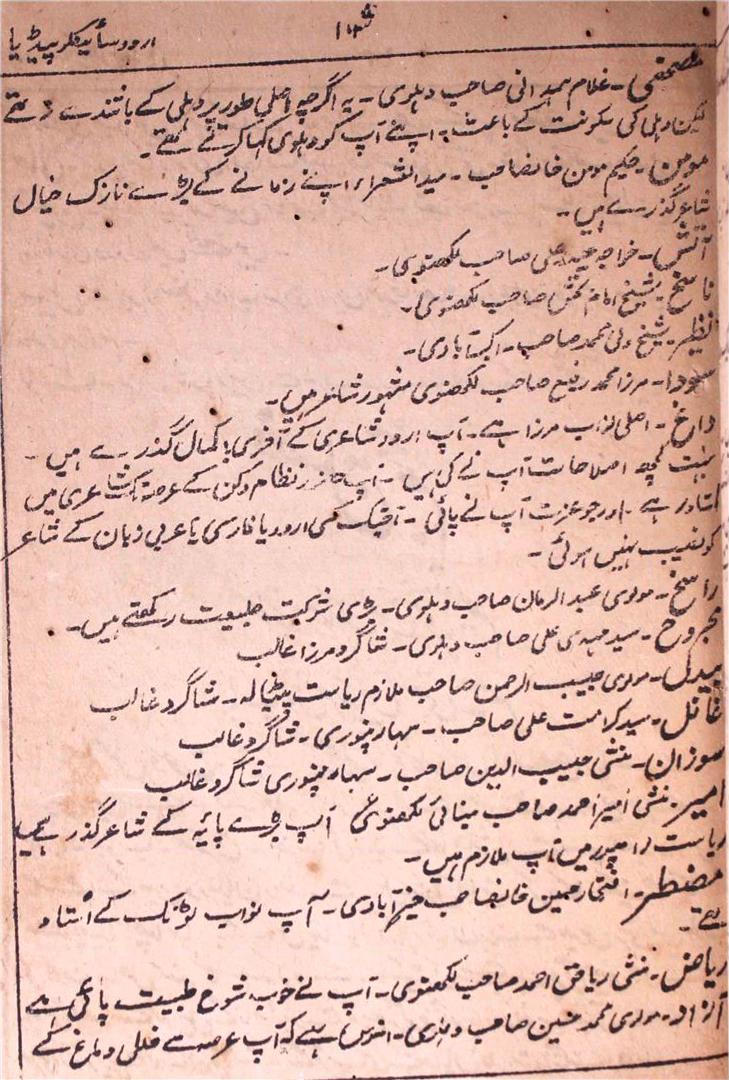 اردو سائیکلوپیڈیا
مصحفی۔ غلام ہمدانی صاحب دہلوی۔ یہ اگرچہ اصلی طور پر دہلی کے باشندے نہ تھے
لیکن دہلی کی سکونت کے باعث اپنے آپ کو دہلوی کہا کرتے تھے۔
مومن۔ حکیم مومن خانصاحب۔ سید الشعراء اپنے زمانے کے بڑے نازک خیال
شاعر گذرے ہیں۔
آتش۔ خواجہ حیدر علی صاحب لکھنوی۔
ناسخ۔ شیخ امام بخش صاحب لکھنوی۔
نظیر۔ شیخ ولی محمد صاحب۔ اکبرآبادی۔
سودا۔ مرزا محمد رفیع صاحب لکھنوی مشہور شاعر ہیں۔
داغ۔ اصلی نواب مرزا ہے۔ آپ اردو شاعری کے آخری باکمال گذرے ہیں۔
بہت کچھ اصلاحات آپ نے کی ہیں۔ آپ حضور نظام دکن کے عرصہ تک شاعری میں
استاد رہے۔ اور جو عزت آپ نے پائی۔ آجتک کسی اردو یا فارسی یا عربی زبان کے شاعر
کو نصیب نہیں ہوئی۔
راسخ۔ مولوی عبد الرحمان صاحب دہلوی۔ بڑی شرکت طبیعت رکھتے ہیں۔
مجروح۔ سید مہدی علی صاحب دہلوی۔ شاگرد مرزا غالب
بیدل۔ مولوی حبیب الرحمن صاحب ملازم ریاست پٹیالہ۔ شاگرد غالب
غافل۔ سید کرامت علی صاحب۔ سہارنپوری۔ شاگرد غالب
سوزان۔ منشی حبیب الدین صاحب۔ سہارنپوری شاگرد غالب
امیر۔ منشی امیر احمد صاحب مینائی لکھنوی آپ بڑے پایہ کے شاعر گذرے ہیں
ریاست رامپور میں آپ ملازم ہیں۔
مضطر۔ افتخار حسین خانصاحب خیرآبادی۔ آپ نواب ٹونک کے استاد
تھے۔
ریاض۔ منشی ریاض احمد صاحب لکھنوی۔ آپ نے خوب شوخ طبیعت پائی ہے
آزاد۔ مولوی محمد حسین صاحب دہلوی۔ افسوس ہے کہ آپ عرصہ سے خلل دماغ کے